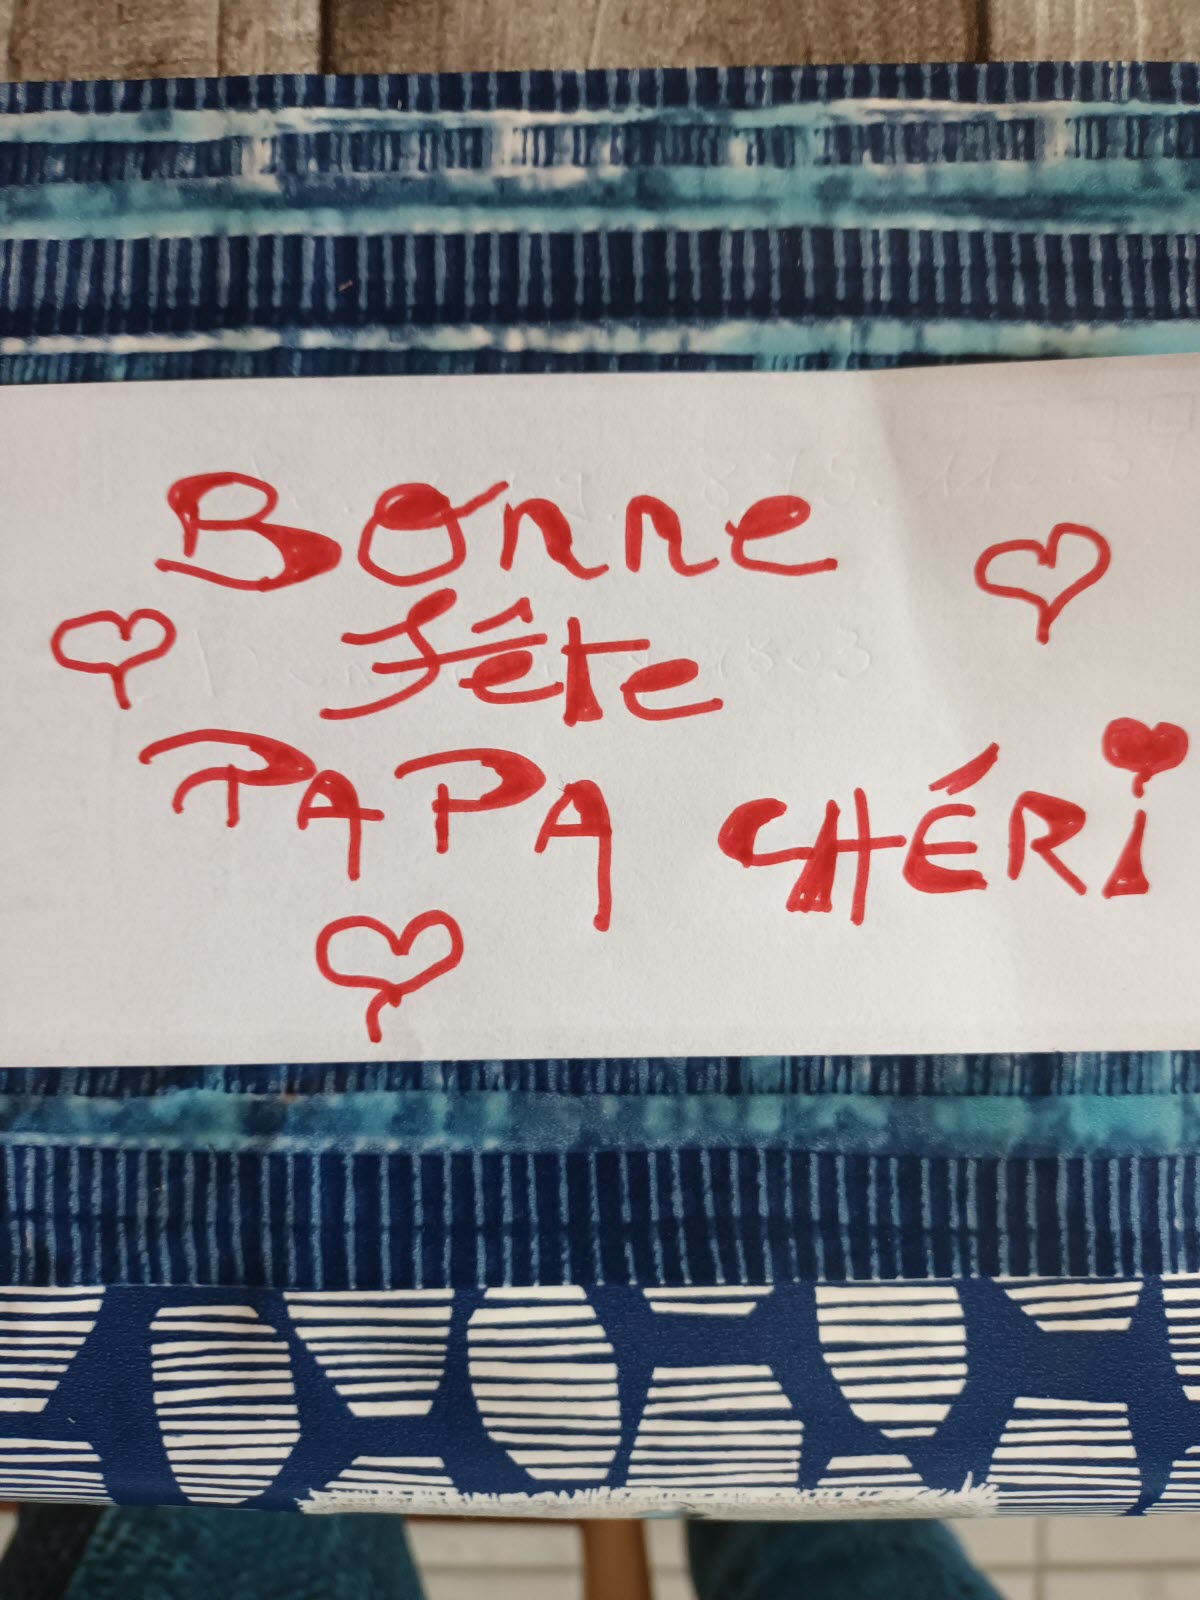 Bonne
fête
PAPA CHÉRi